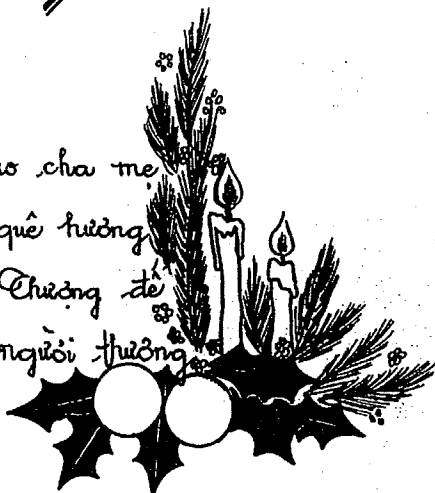 cha mẹ
quê hương
Thượng đế
người thương